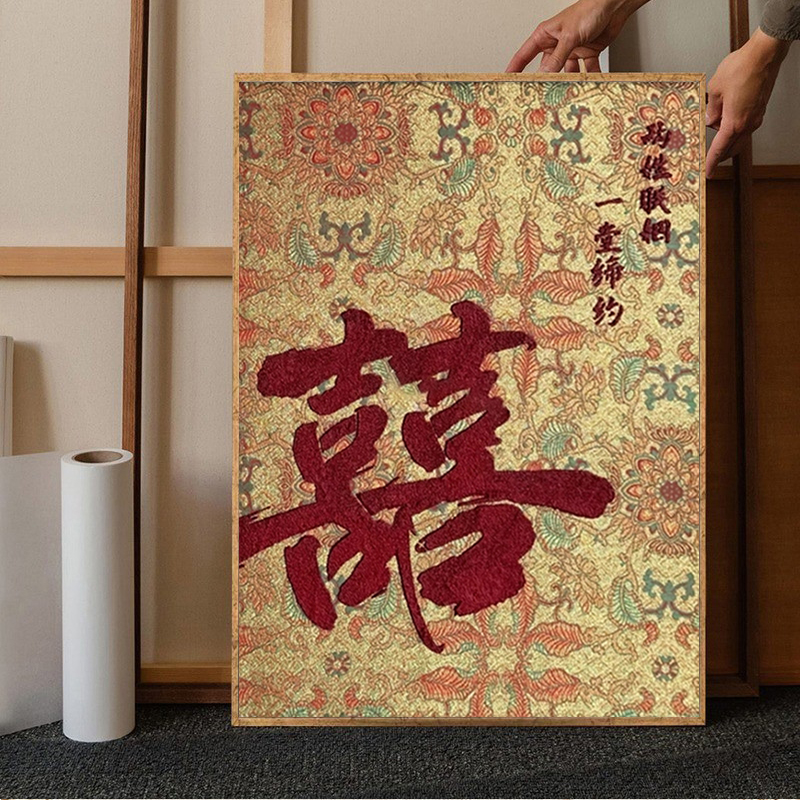 两姓联姻
一堂缔约
囍